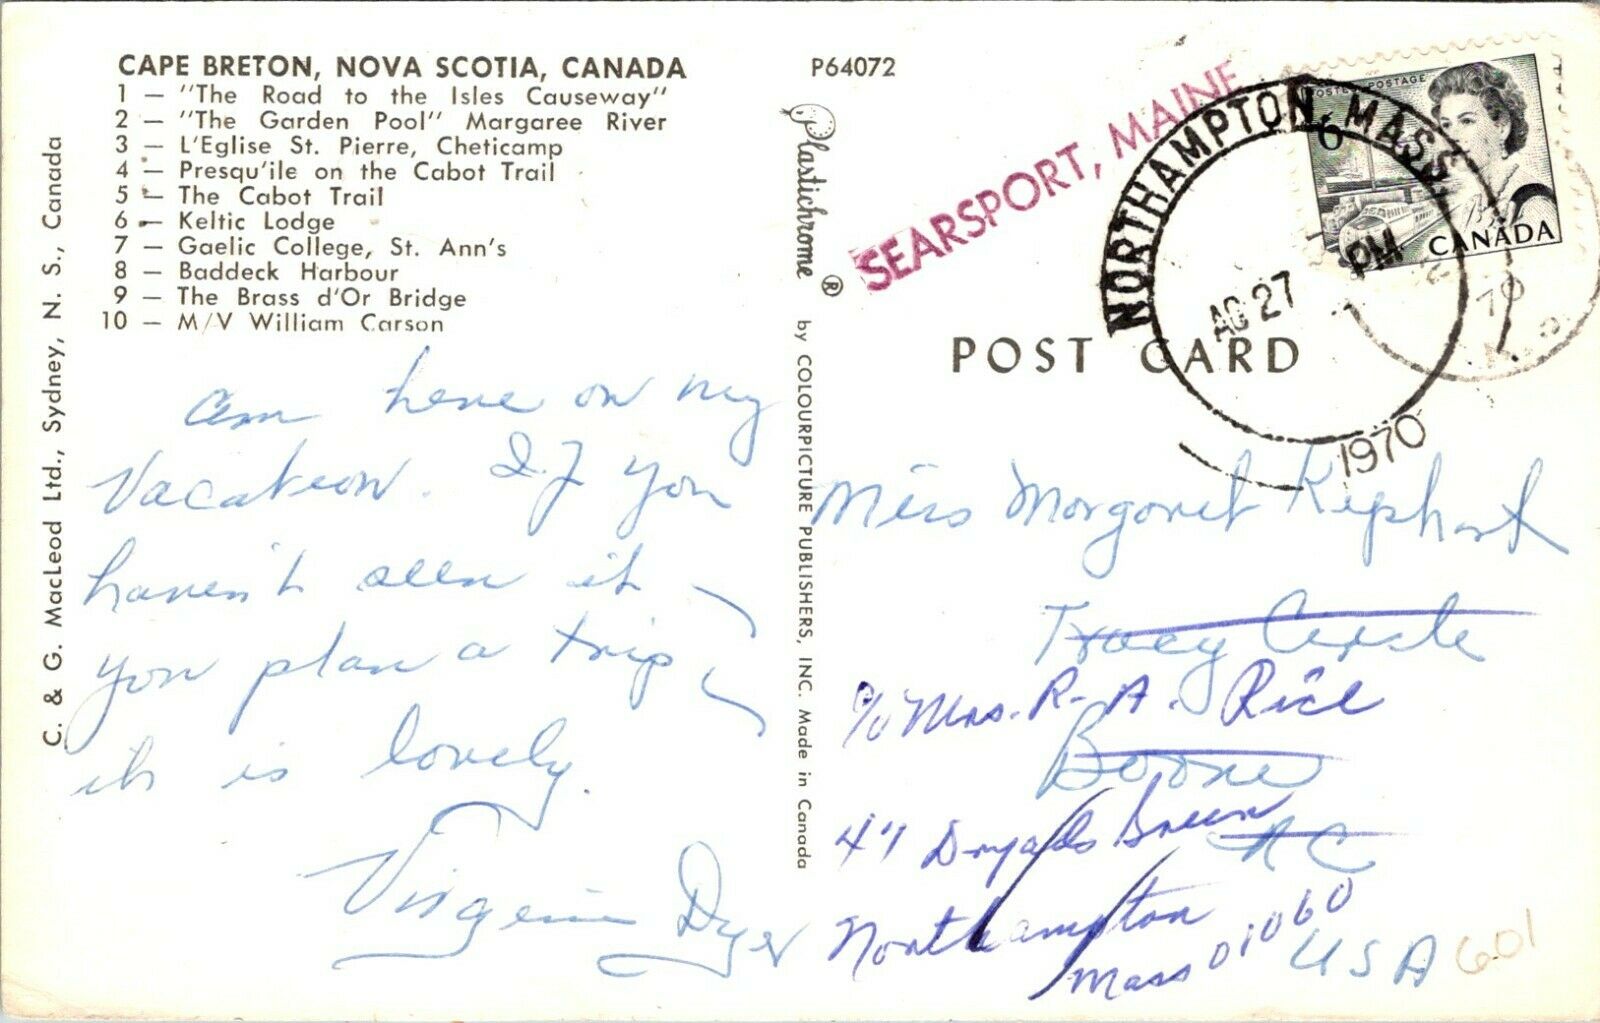 CAPE BRETON, NOVA SCOTIA, CANADA
1 — "The Road to the Isles Causeway"
2 — "The Garden Pool" Margaree River
3 — L'Eglise St. Pierre, Cheticamp
4 — Presqu'ile on the Cabot Trail
5 — The Cabot Trail
6 — Keltic Lodge
7 — Gaelic College, St. Ann's
8 — Baddeck Harbour
9 — The Brass d'Or Bridge
10 — M/V William Carson
C. & G. MacLeod Ltd., Sydney, N. S., Canada
am here on my
vacation. If you
haven't seen it
you plan a trip
it is lovely.
Virginia Dyer
P64072
Plastichrome ® by COLOURPICTURE PUBLISHERS, INC. Made in Canada
SEARSPORT, MAINE
NORTHAMPTON, MASS.
AG 27
PM
1970
POSTES POSTAGE
6
CANADA
POST CARD
Miss Margaret Kephart
Tracy Circle
c/o Mrs. R. A. Rice
Boone
47 Dryads Green
N C
Northampton
Mass 01060
USA
601